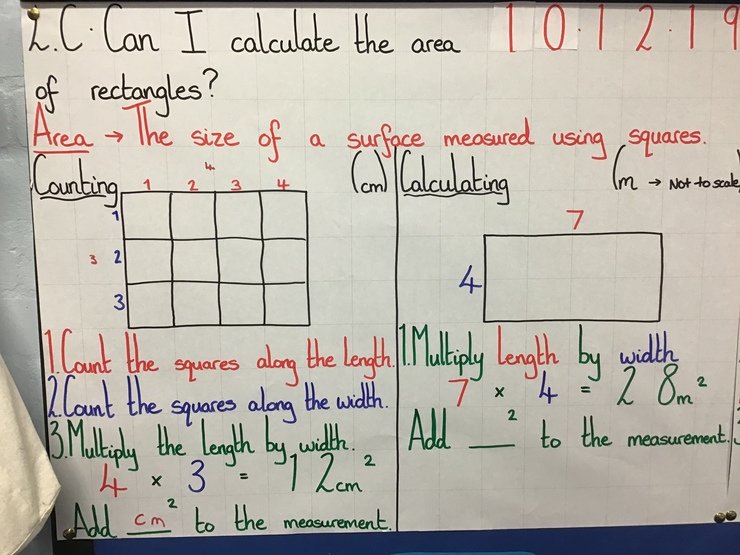 L.C. Can I calculate the area 10.12.19
of rectangles?
Area → The size of a surface measured using squares.
Counting (cm)
4
1 2 3 4
1
3 2
3
1. Count the squares along the length.
2. Count the squares along the width.
3. Multiply the length by width.
4 × 3 = 12cm²
Add cm² to the measurement.
Calculating (m → Not to scale)
7
4
1. Multiply length by width
7 × 4 = 28m²
Add ___² to the measurement.